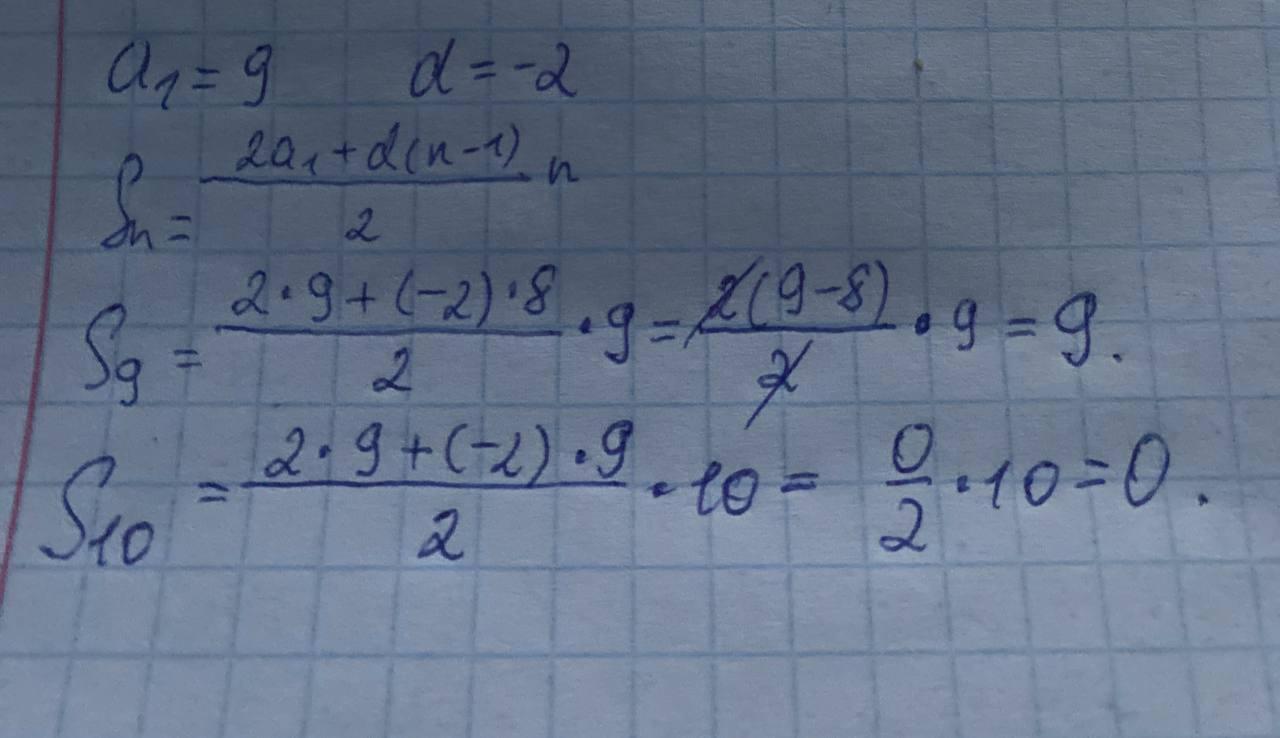 a₁ = 9 d = -2
Sₙ = (2a₁ + d(n-1))/2 n
S₉ = (2·9 + (-2)·8)/2 · 9 = (2(9-8))/2 · 9 = 9.
S₁₀ = (2·9 + (-2)·9)/2 · 10 = 0/2 · 10 = 0.